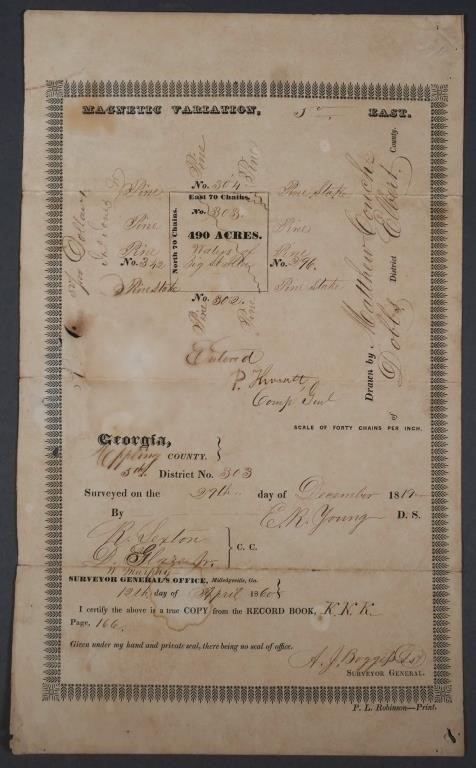 MAGNETIC VARIATION, 5° EAST.
Pine
No. 304
Pine
Pine
East 70 Chains.
Pine Stake
No. 303
Pine
490 ACRES.
Pine
North 70 Chains.
Pine
Waters of
Pine
No. 342
Big St
No. 396
Pine Stake
Pine Stake
No. 302
Pine
Pine
five Dollars
Drawn by Matthew Couch
of Dobbs District Elbert County.
Entered
P. Thweatt
Comp Genl
SCALE OF FORTY CHAINS PER INCH.
Georgia,
Appling COUNTY.
5th District No. 303
Surveyed on the 29th day of December 1819
By E. R. Young D. S.
R. Sexton
D. Glazier
W. Murphy
C. C.
SURVEYOR GENERAL'S OFFICE, Milledgeville, Ga.
12th day of April 1860
I certify the above is a true COPY from the RECORD BOOK, K.K.K.
Page, 166.
Given under my hand and private seal, there being no seal of office.
A. J. Boggess
SURVEYOR GENERAL.
P. L. Robinson—Print.